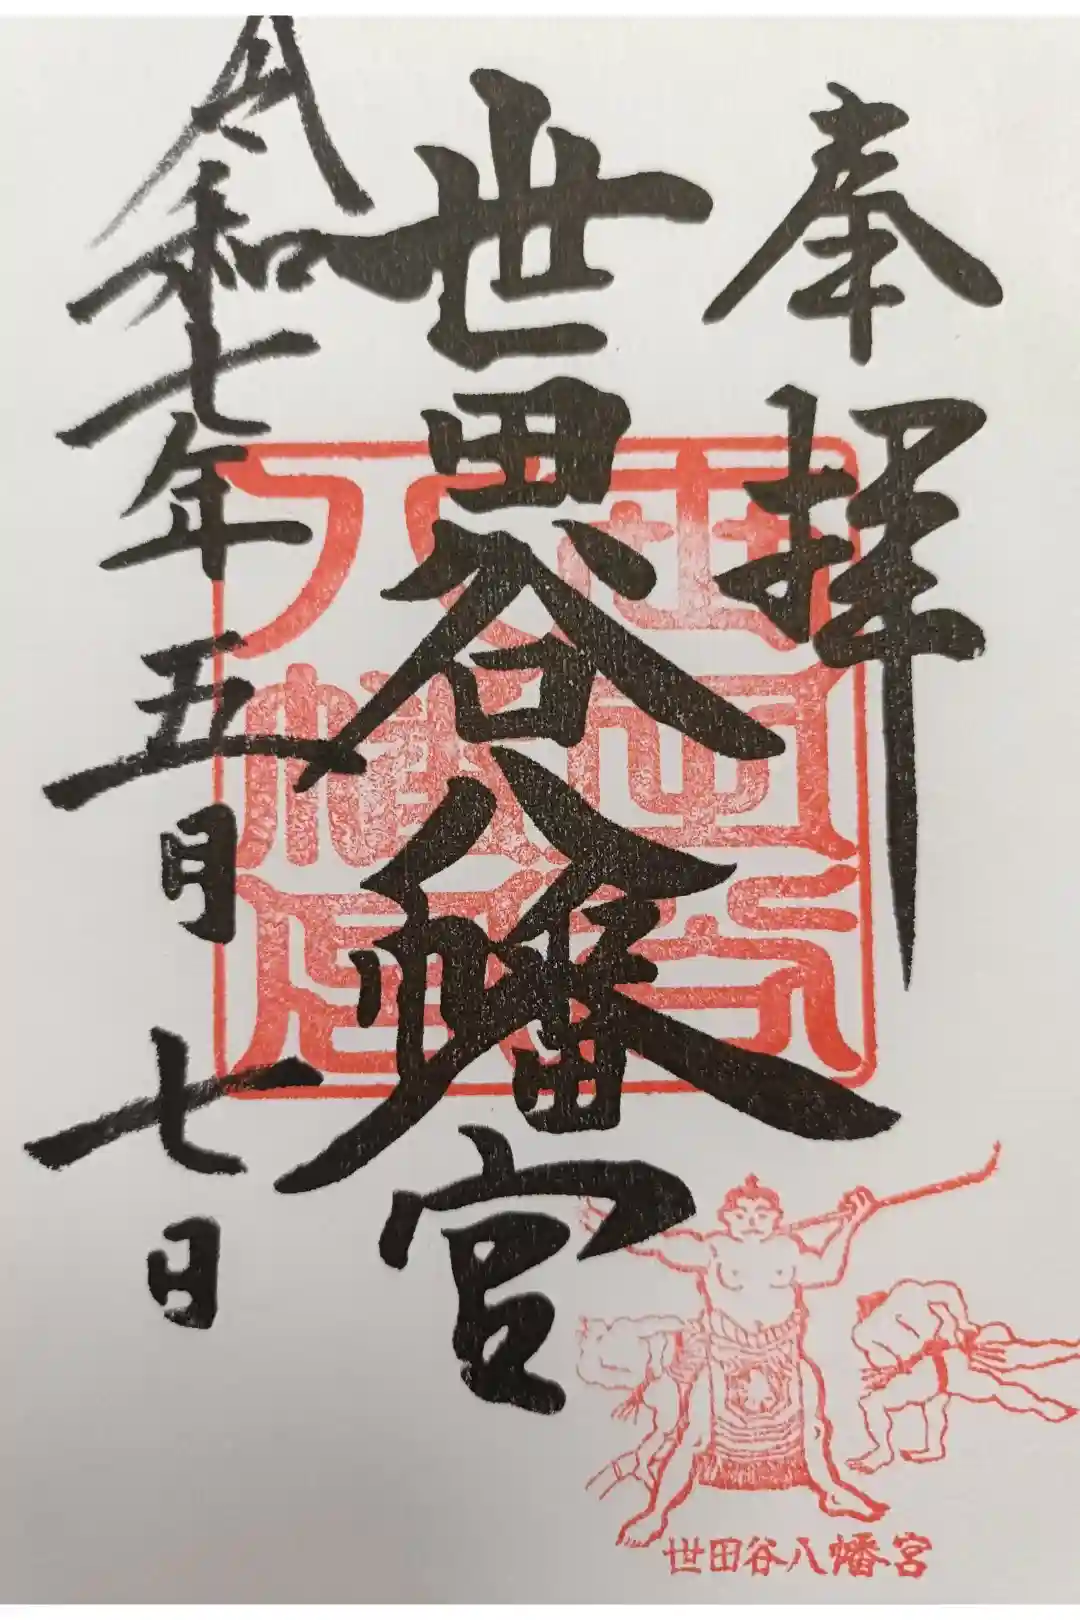 奉拝
世田谷八幡宮
令和七年五月七日
世田谷
八幡宮
世田谷八幡宮